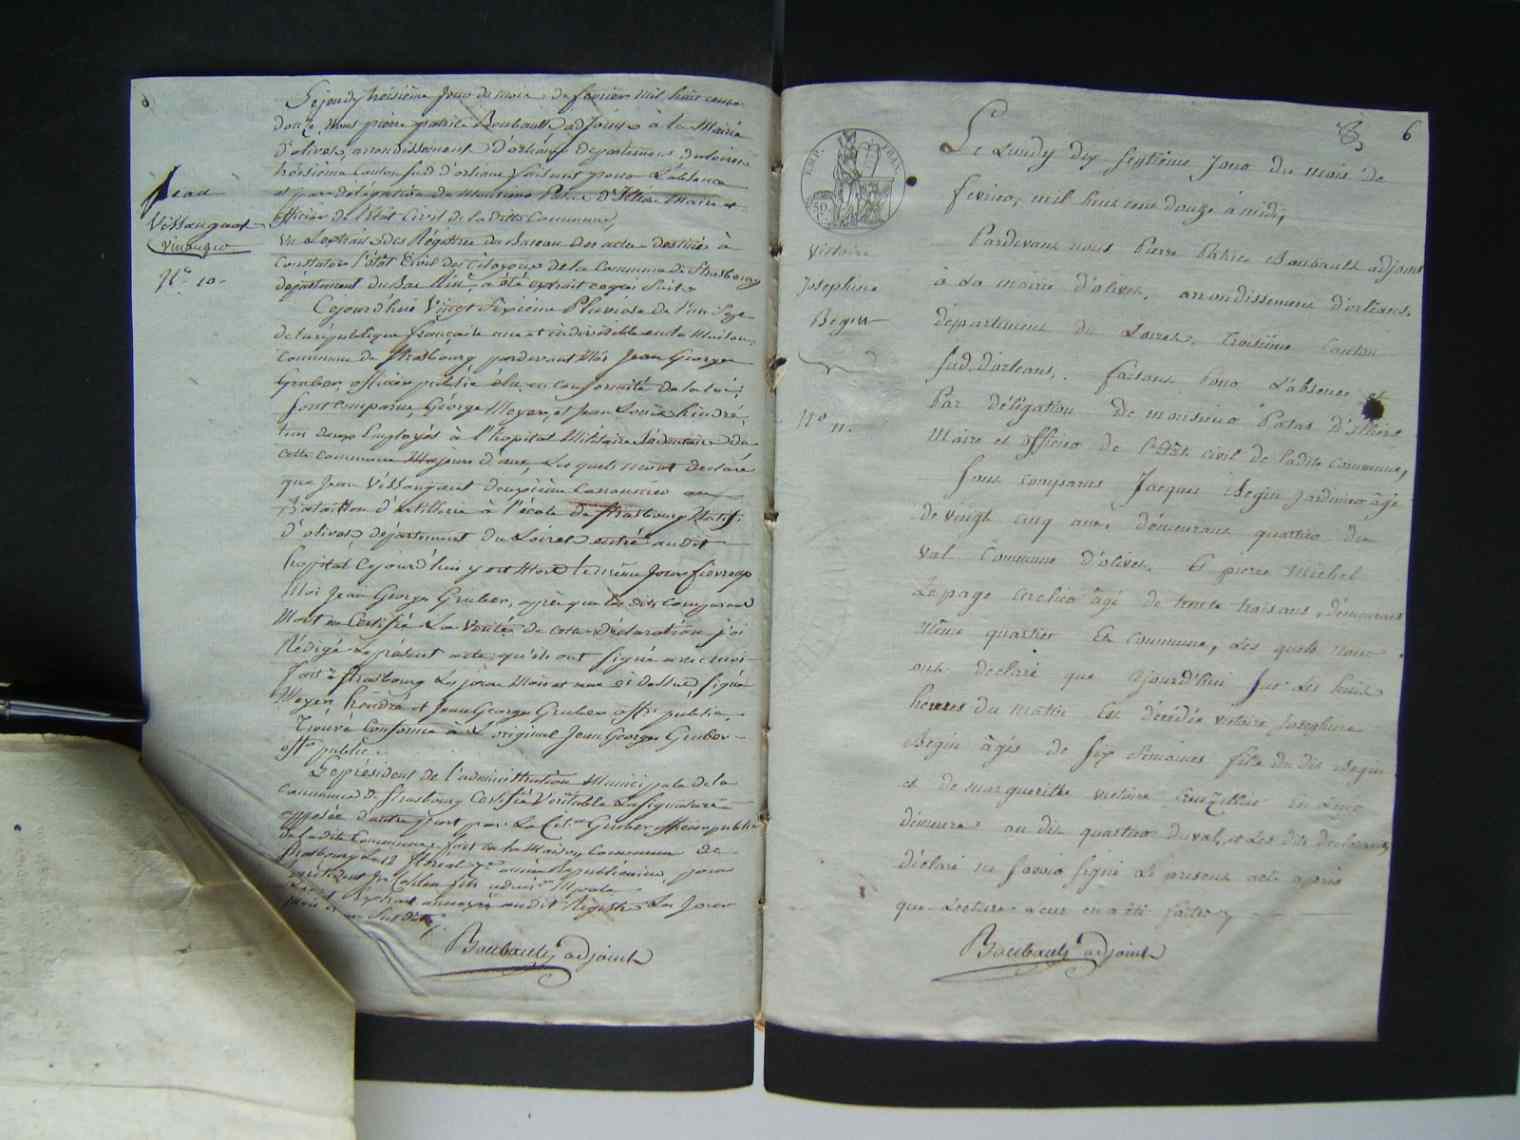 Jean
Vissaugeat
N° 10.
Cejeudy troisième Jour du mois de fevrier mil huit cents
douze, Nous pierre patrice Boubault adjoint à la Mairie
d'olivet, arrondissement d'orléans departement du loiret
troisième Canton sud d'orleans faisant pour L'absence
et par delegation de Monsieur Patas d'Illiers Maire et
officier de l'Etat Civil de la ditte Commune,
Vu L'extrait des Régistres du Bureau des actes destinés à
Constater l'état Civil des Citoyens de la Commune de Strasbourg
département du Bas Rhin, a été extrait ce qui Suit
Cejourd'hui Vingt Sixième Pluviose de l'an Sept
de la république française une et indivisible en la Maison
Commune de Strasbourg pardevant Moi Jean George
Gruber officier public élu en conformité de la loi,
Sont comparus George Moyen, et Jean Louis hindré,
tous deux Employés à l'hopital Militaire Sédentaire de
cette commune Majeurs d'ans, Les quels m'ont declaré
que Jean Vissaugeat deuxième Canonnier au
Bataillon d'artillerie à l'école de Strasbourg Natif
d'olivet département du Loiret entré audit
hopital Cejourd'hui y est Mort le même Jour fievreux
Moi Jean George Gruber, après que les dits Comparans
M'ont Certifié La Verité de cette déclaration j'ai
Rédigé Le présent acte qu'ils ont Signé avec moi
fait à Strasbourg Les jour Mois et an Ci dessus Signé
Moyen, hindré et Jean George Gruber offr public,
Trouvé Conforme à L'original Jean George Gruber
offr public.
Le président de l'administration Municipale de la
Commune de Strasbourg Certifie Véritable La Signature
apposée d'autre part par Le Cit.en Gruber officier public
de la dite Commune, fait en la Maison Commune de
Strasbourg Le Floréal 7e année Republicaine,
président
annexé audit Régistre Les Jour
mois et an Susdits
Boubault adjoint
6
EMP. FRAN.
Victoire
Josephine
Begin
N° 11.
Le Lundy dix Septième Jour du mois de
fevrier, mil huit cent douze à midi,
Pardevant nous Pierre Patrice Boubault adjoint
à La mairie d'olivet, arrondissement d'orléans,
département du Loiret, troisième Canton
sud d'orleans, faisant Pour L'absence et
Par délégation de monsieur Patas d'illiers
Maire et officier de l'état civil de ladite Commune,
Sont comparus Jacques Begin Jardinier âgé
de vingt cinq ans, demeurant quartier du
val Commune d'olivet, Et pierre Michel
Lepage cerclier âgé de trente trois ans, demeurant
même quartier Et commune, Les quels nous
ont declaré que cejourd'hui Sur Les huit
heures du matin Est décédée victoire Josephine
Begin âgée de six semaines fille du dit Begin
et de marguerithe victoire En Leur
demeure au dit quartier du val, et Les dits declarants
déclaré ne Savoir signer Le present acte après
que Lecture Leur en a été faite
Boubault adjoint